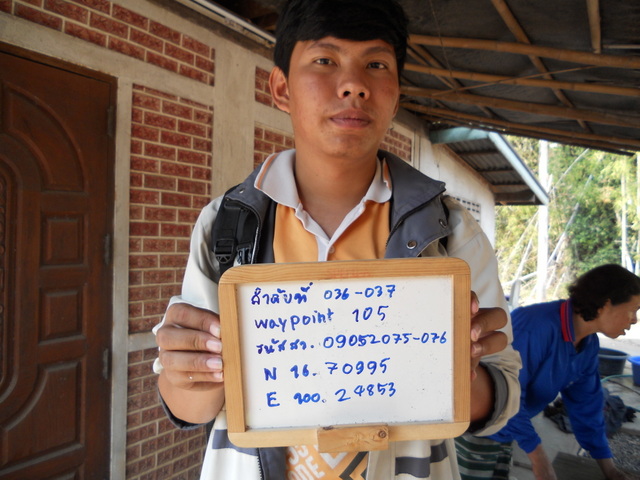 ลำดับที่ 036-037
waypoint 105
รหัสสว. 09052075-076
N 16. 70995
E 100. 24853